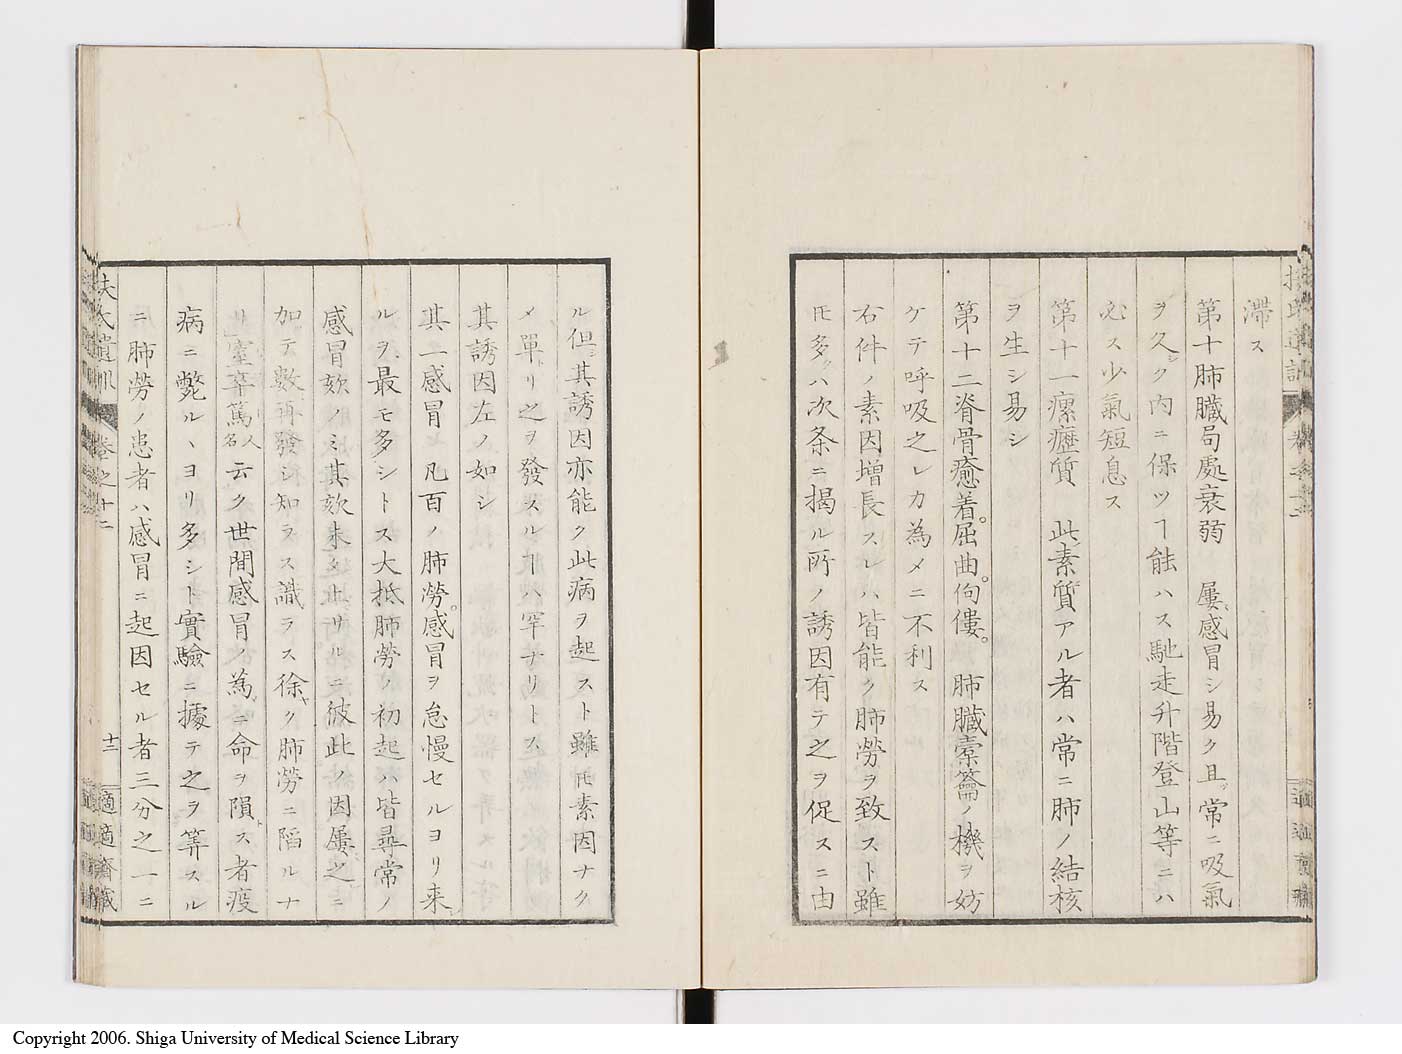 滞ス
第十肺臓局處衰弱　屢感冒シ易ク且常ニ吸氣
ヲ久シク内ニ保ツヿ能ハス馳走升階登山等ニハ
必ス少氣短息ス
第十一瘰癧質　此素質アル者ハ常ニ肺ノ結核
ヲ生シ易シ
第十二脊骨癒着。屈曲。佝僂。肺臓槖籥ノ機ヲ妨
ケテ呼吸之レカ為メニ不利ス
右件ノ素因増長スレハ皆能ク肺勞ヲ致スト雖
𪜈多クハ次条ニ揭ル所ノ誘因有テ之ヲ促スニ由
ル但シ其誘因亦能ク此病ヲ起スト雖𪜈素因ナク
メ單リ之ヲ發スルヿハ罕ナリトス
其誘因左ノ如シ
其一感冒　凡百ノ肺勞。感冒ヲ怠慢セルヨリ来
ルヲ最モ多シトス大抵肺勞ノ初起ハ皆尋常ノ
感冒欬ノミ其欬未タ止サルニ彼此ノ因屢之ニ
加テ數再發シ知ラス識ラス徐ク肺勞ニ陷ルナ
リ 窒卒篤人名云ク世間感冒ノ為ニ命ヲ隕ス者疫
病ニ斃ルヽヨリ多シト實驗ニ據テ之ヲ筭スル
ニ肺勞ノ患者ハ感冒ニ起因セル者三分之一ニ
扶氏遺訓
卷之十二
十二
適適齋藏